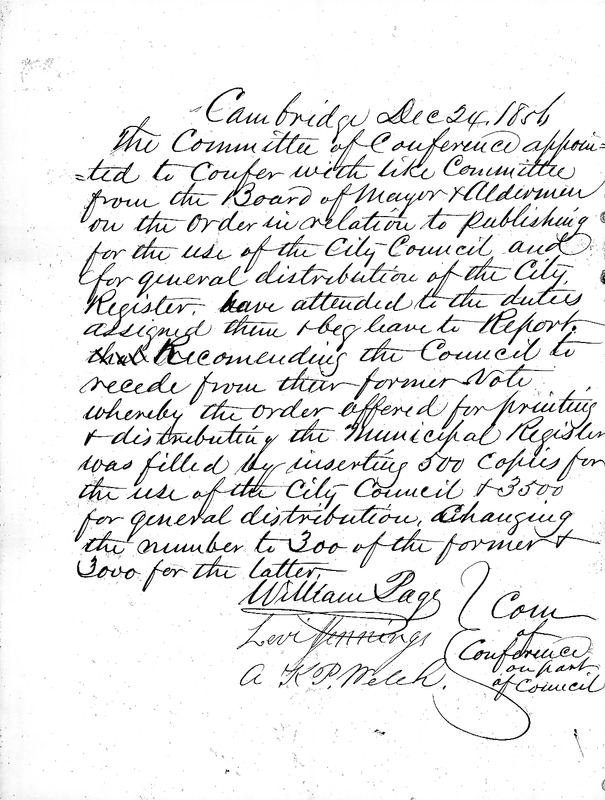 Cambridge Dec 24, 1856
The Committee of Conference appoin=
=ted to Confer with like Committee
from the Board of Mayor & Aldermen
on the Order in relation to publishing
for the use of the City Council and
for general distribution of the City
Register, have attended to the duties
assigned them & beg leave to Report.
that Recomending the Council to
recede from their former Vote
whereby the order offered for printing
& distributing the Municipal Register
was filled by inserting 500 Copies for
the use of the City Council & 3500
for general distribution, Changing
the number to 300 of the former &
3000 for the latter.
William Page
Levi Jennings
A K P. Welch.
Com
of
Conference
on part
of Council